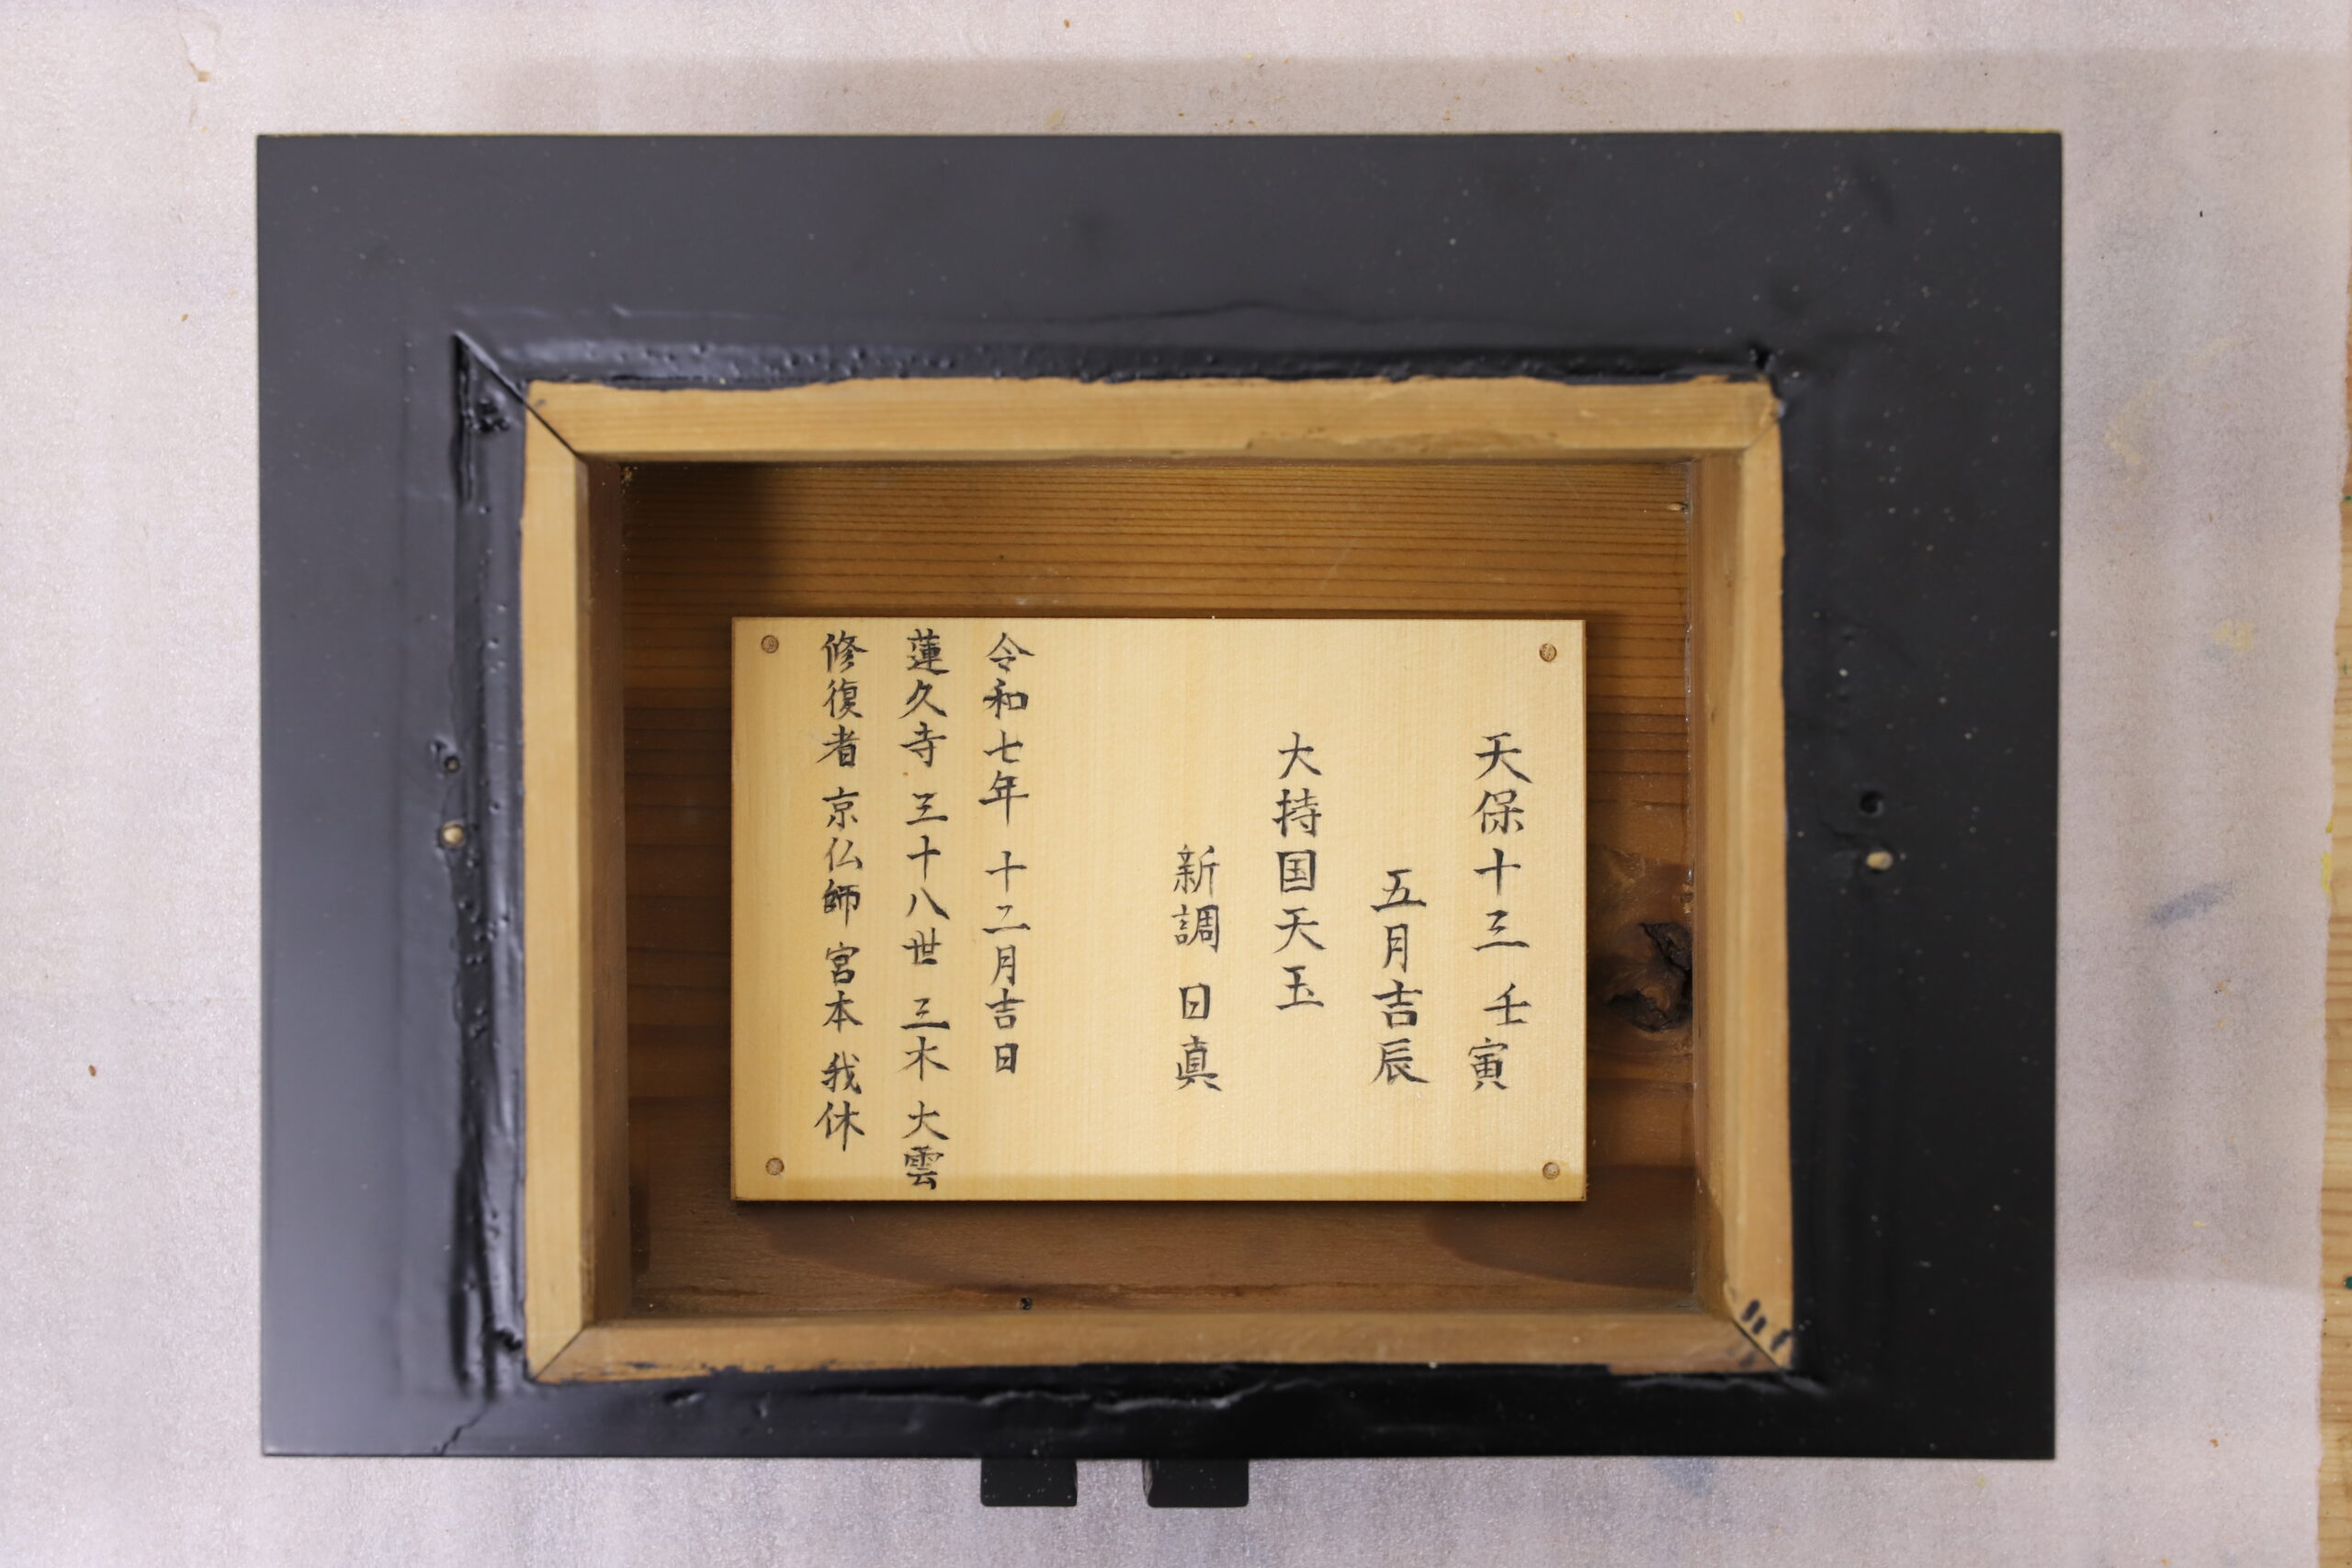 天保十三 壬寅
五月吉辰
大持国天玉
新調 日真
令和七年 十二月吉日
蓮久寺 三十八世 三木 大雲
修復者 京仏師 宮本 我休